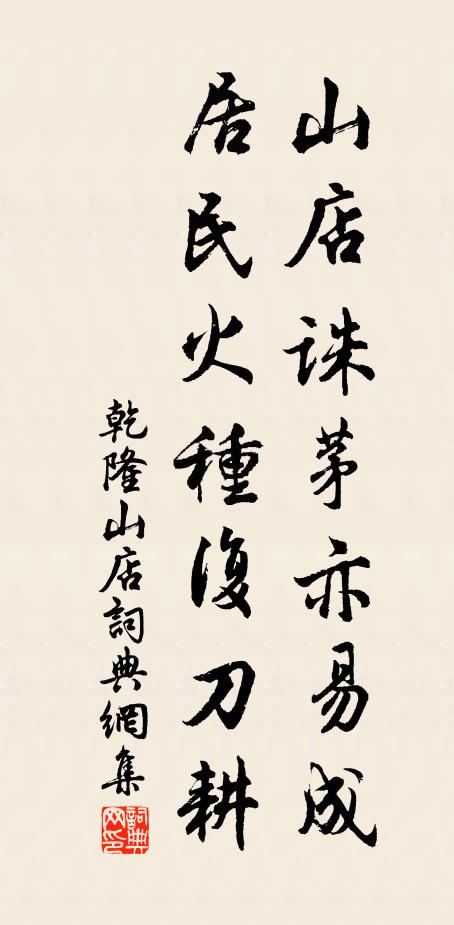 山店誅茅亦易成
居民火種復刀耕
乾隆山店詞典網集
詞典網印